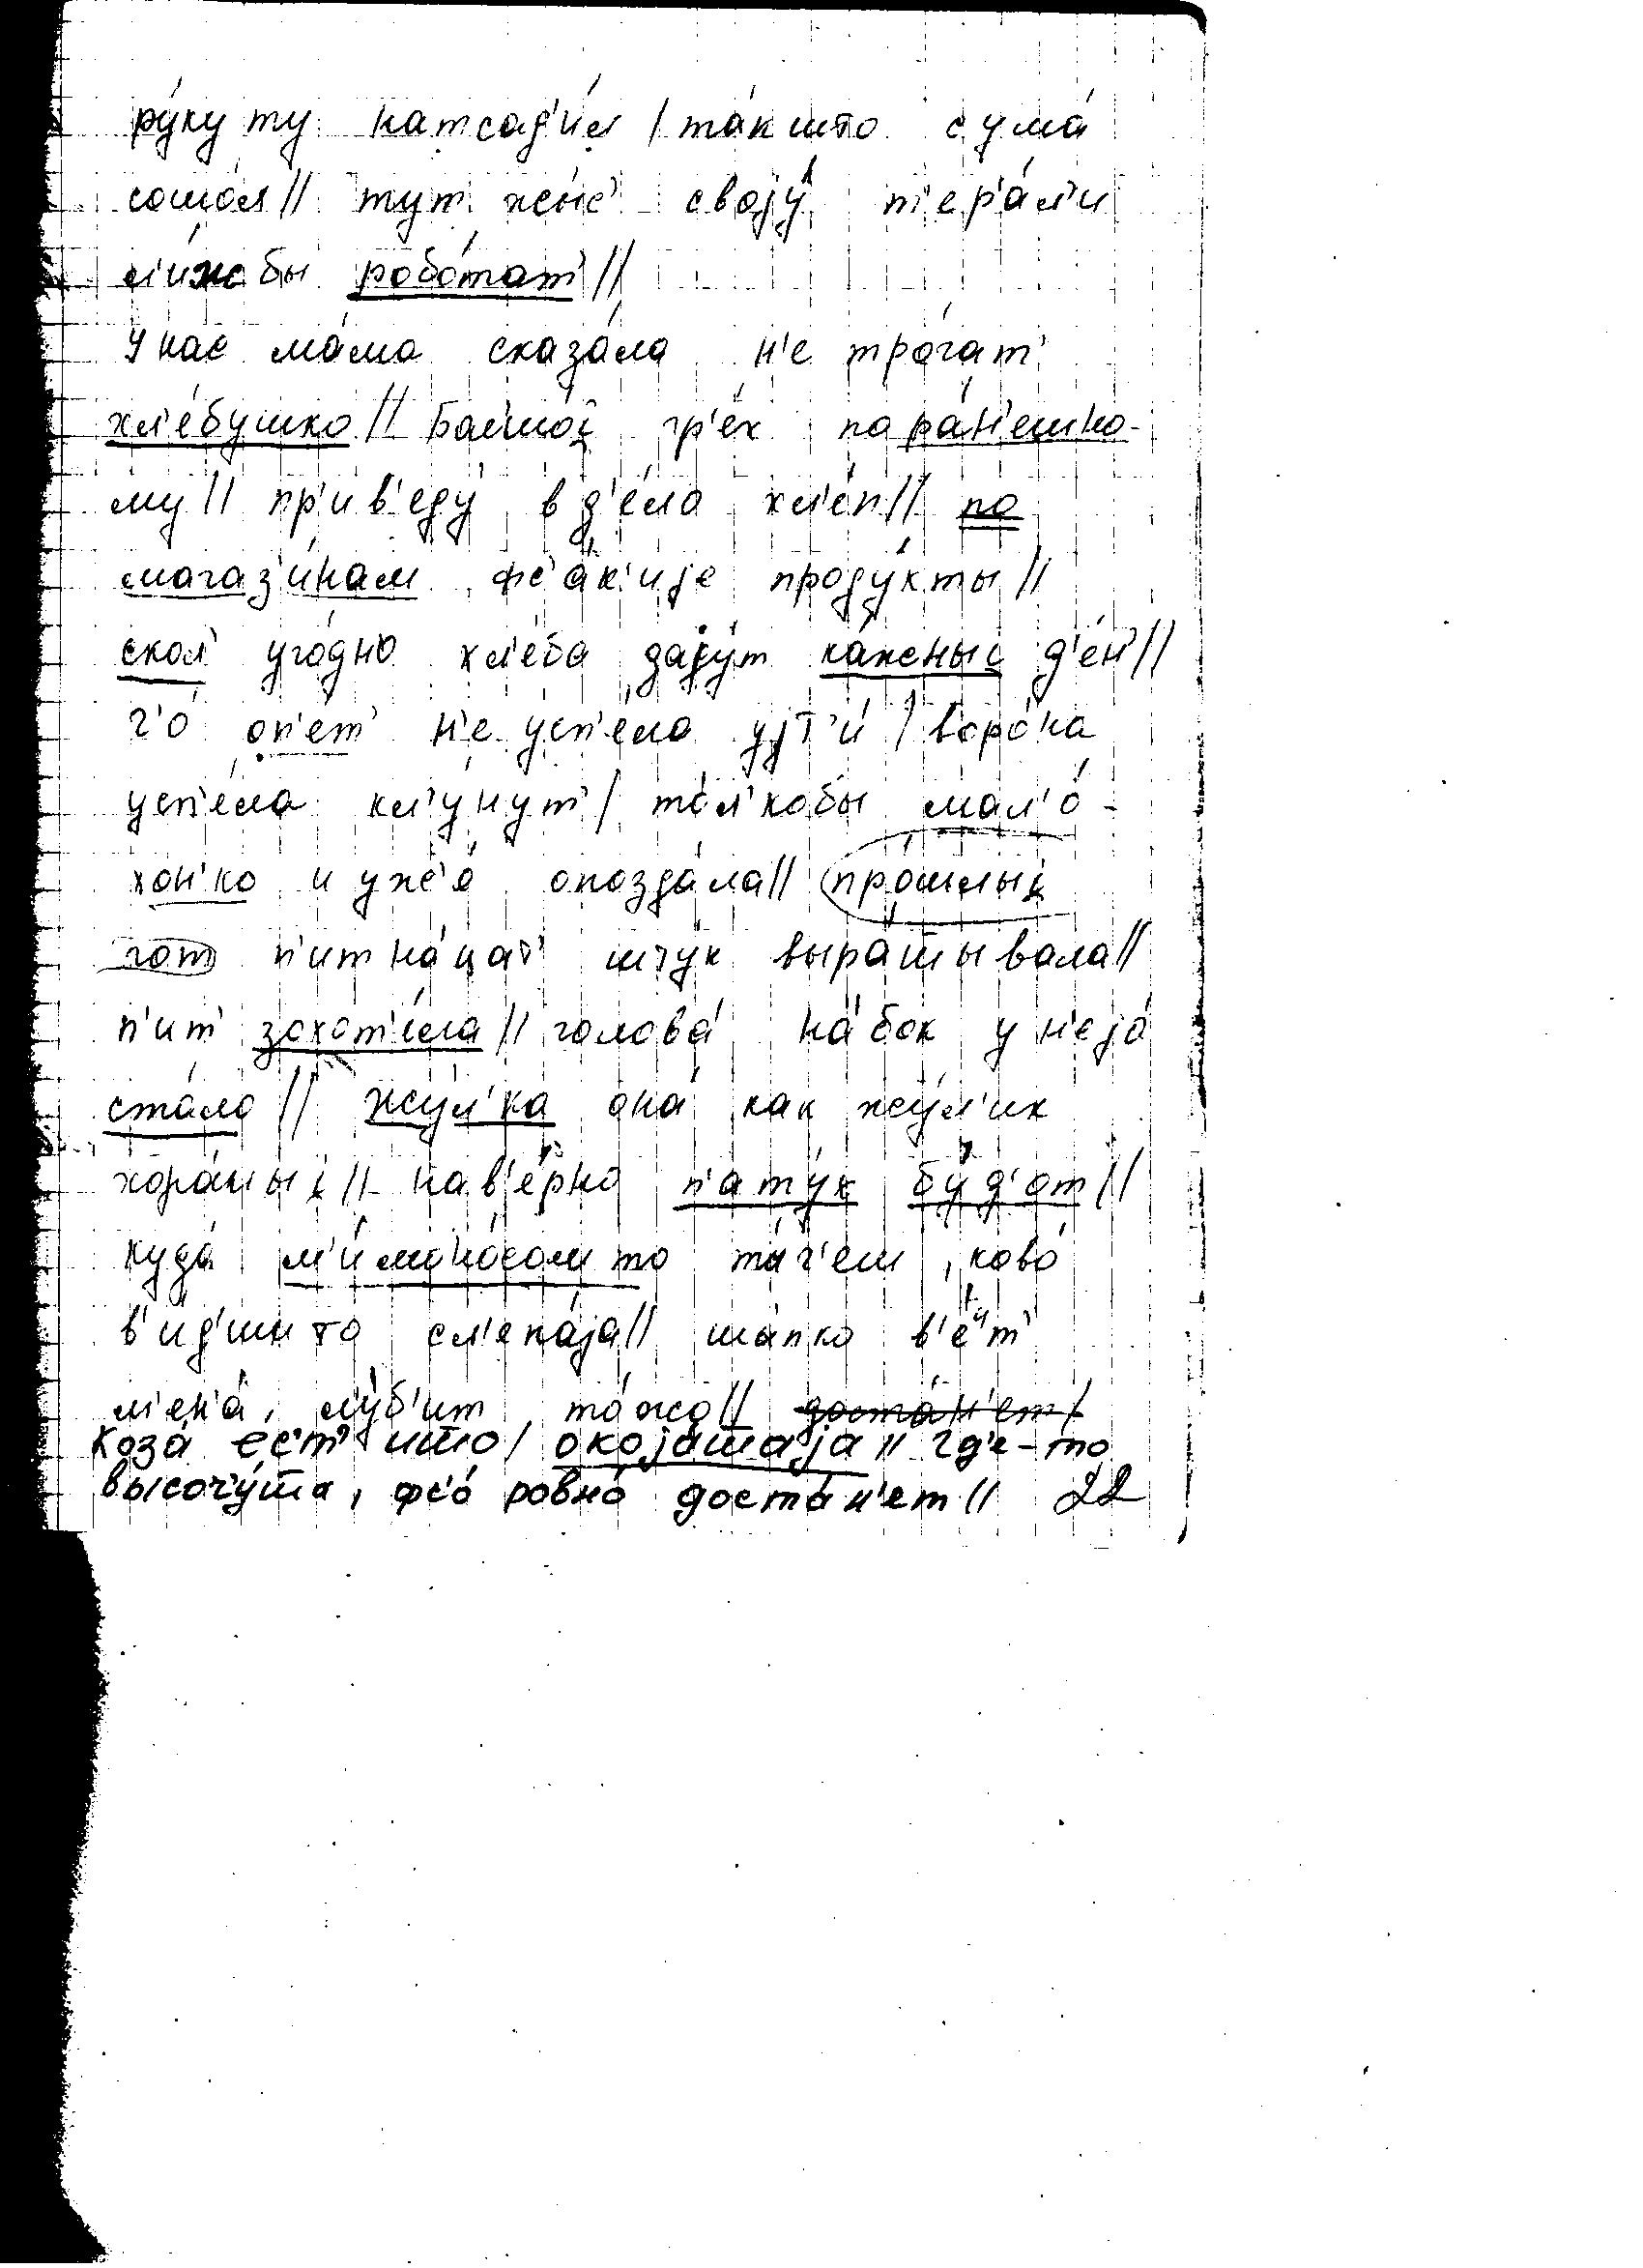 ру́ку ту натсад'и́л / та́кшто с ума́
сошо́л // тут жы́с' своjу́ т'ер'а́л'и
л'и́жбы робо́тат' //
У нас ма́ма сказа́ла н'е тро́гат'
хл'е́бушко // бал'шо́j гр'е́х па ра́н'ешно-
му // пр'ив'еду́ в д'е́ла хл'е́п // по
магаз'и́нам фс'а́к'иjе проду́кты //
скол' уго́дно хл'е́ба даjу́т ка́жныj д'е́н' //
ч'о́ оп'е́т' н'е усп'е́ла уjт'и́ / воро́на
усп'е́ла кл'у́нут' / то́л'кобы мал'о́-
хон'ко и уж'о́ опозда́ла // про́шлыj
гот п'итна́цат' штук выра́шывала //
п'ит' захот'е́ла // голова́ на́ бок у н'еjо́
ста́ла // жу́л'ка она́ как жу́л'ик
хоро́шыj // нав'е́рно п'ату́х бу́д'от //
куда́ м'и́мо но́сом то ты́ч'еш, ково́
в'и́д'ишто сл'епа́jа // ша́пко в'е́ит'
м'ен'а́, л'у́б'ит то́жо // ~~доста́н'ет /~~
коза́ ес'т' што / окоjа́шаjа // гд'е-то
высочу́ша, фс'о́ ровно́ доста́н'ет // 22